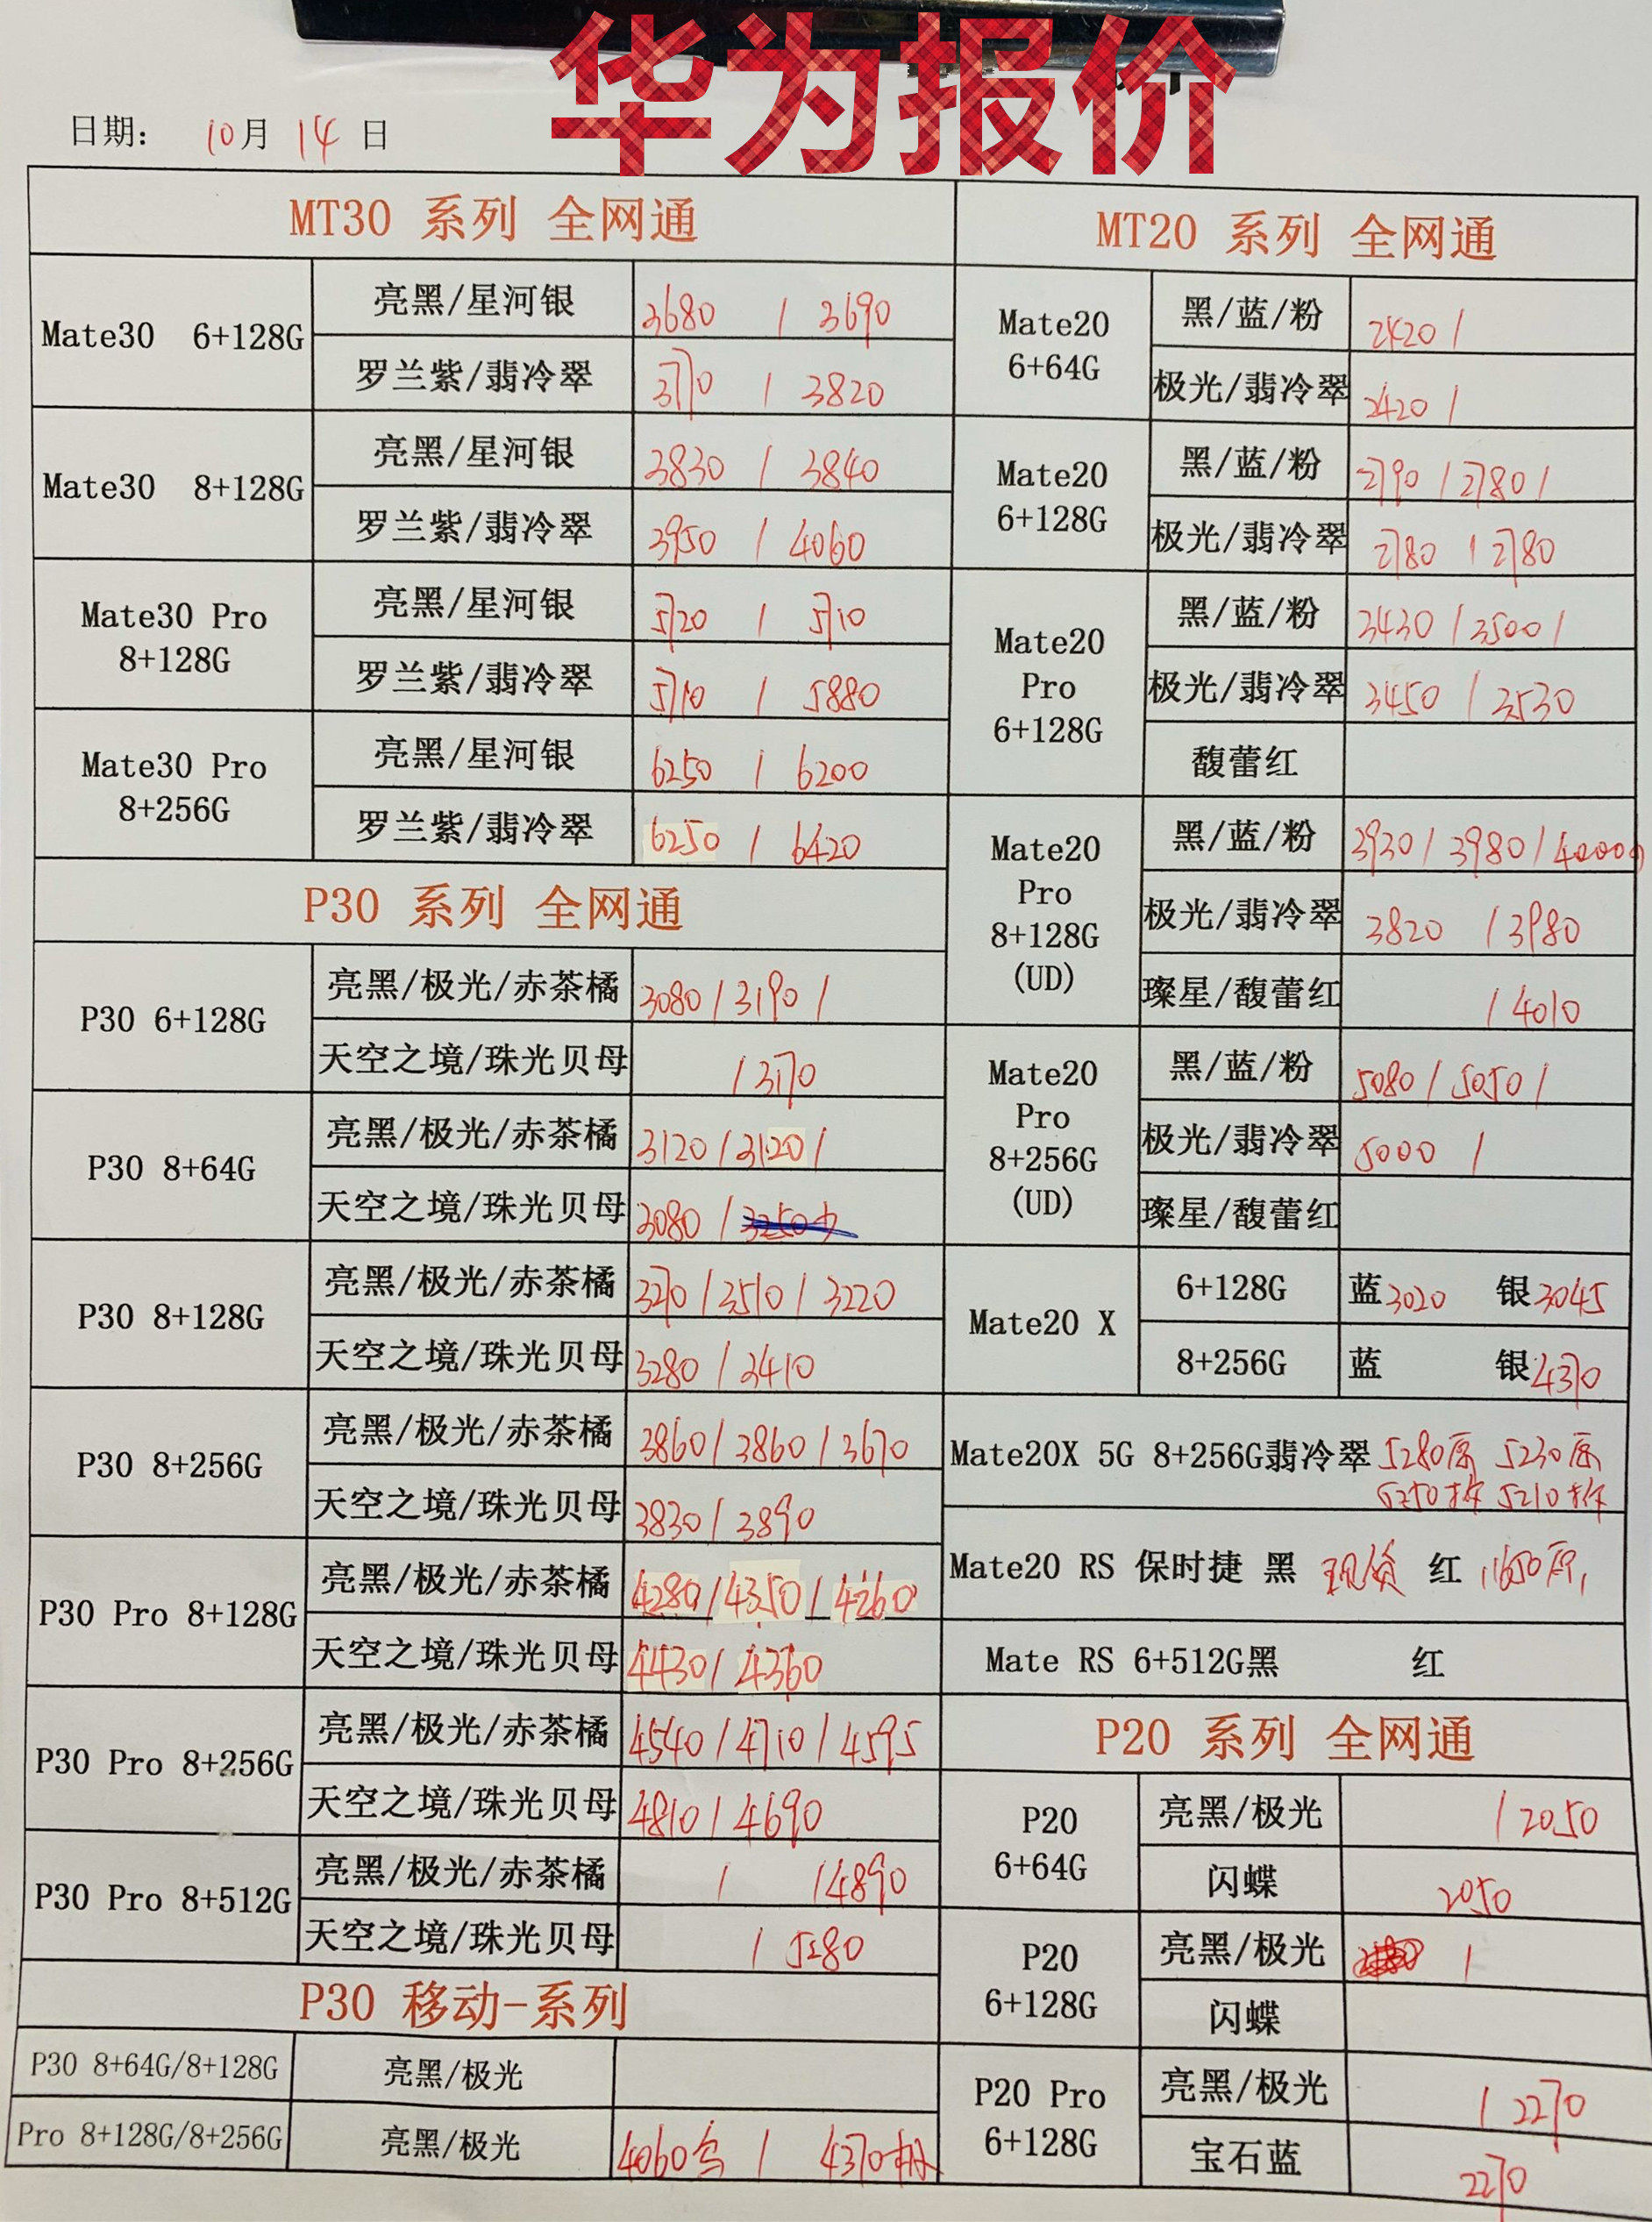 华为报价
日期： 10月 14 日
MT30 系列 全网通
Mate30 6+128G
亮黑/星河银 3680 / 3690
罗兰紫/翡冷翠 3770 / 3820
Mate30 8+128G
亮黑/星河银 3830 / 3840
罗兰紫/翡冷翠 3950 / 4060
Mate30 Pro
8+128G
亮黑/星河银 5720 / 5710
罗兰紫/翡冷翠 5710 / 5880
Mate30 Pro
8+256G
亮黑/星河银 6250 / 6200
罗兰紫/翡冷翠 6250 / 6420
P30 系列 全网通
P30 6+128G
亮黑/极光/赤茶橘 3080 / 3190 /
天空之境/珠光贝母 / 3170
P30 8+64G
亮黑/极光/赤茶橘 3120 / 3120 /
天空之境/珠光贝母 3080 /
P30 8+128G
亮黑/极光/赤茶橘 3270 / 3510 / 3220
天空之境/珠光贝母 3280 / 3410
P30 8+256G
亮黑/极光/赤茶橘 3860 / 3860 / 3670
天空之境/珠光贝母 3830 / 3890
P30 Pro 8+128G
亮黑/极光/赤茶橘 4280 / 4350 / 4260
天空之境/珠光贝母 4430 / 4360
P30 Pro 8+256G
亮黑/极光/赤茶橘 4540 / 4710 / 4595
天空之境/珠光贝母 4810 / 4690
P30 Pro 8+512G
亮黑/极光/赤茶橘 / / 4890
天空之境/珠光贝母 / 5280
P30 移动-系列
P30 8+64G/8+128G 亮黑/极光
Pro 8+128G/8+256G 亮黑/极光 4060 / 4370
MT20 系列 全网通
Mate20
6+64G
黑/蓝/粉 2420 /
极光/翡冷翠 2420 /
Mate20
6+128G
黑/蓝/粉 2790 / 2780 /
极光/翡冷翠 2780 / 2780
Mate20
Pro
6+128G
黑/蓝/粉 3430 / 3500 /
极光/翡冷翠 3450 / 3530
馥蕾红
Mate20
Pro
8+128G
(UD)
黑/蓝/粉 3930 / 3980 /
极光/翡冷翠 3820 / 3980
璨星/馥蕾红 / 4010
Mate20
Pro
8+256G
(UD)
黑/蓝/粉 5080 / 5050 /
极光/翡冷翠 5000 /
璨星/馥蕾红
Mate20 X
6+128G 蓝3020 银3045
8+256G 蓝 银4370
Mate20X 5G 8+256G翡冷翠 5280原 5230原
5250拆 5210拆
Mate20 RS 保时捷 黑 现货 红 11650原
Mate RS 6+512G黑 红
P20 系列 全网通
P20
6+64G
亮黑/极光 / 2050
闪蝶 2050
P20
6+128G
亮黑/极光 /
闪蝶
P20 Pro
6+128G
亮黑/极光 / 2270
宝石蓝 2270